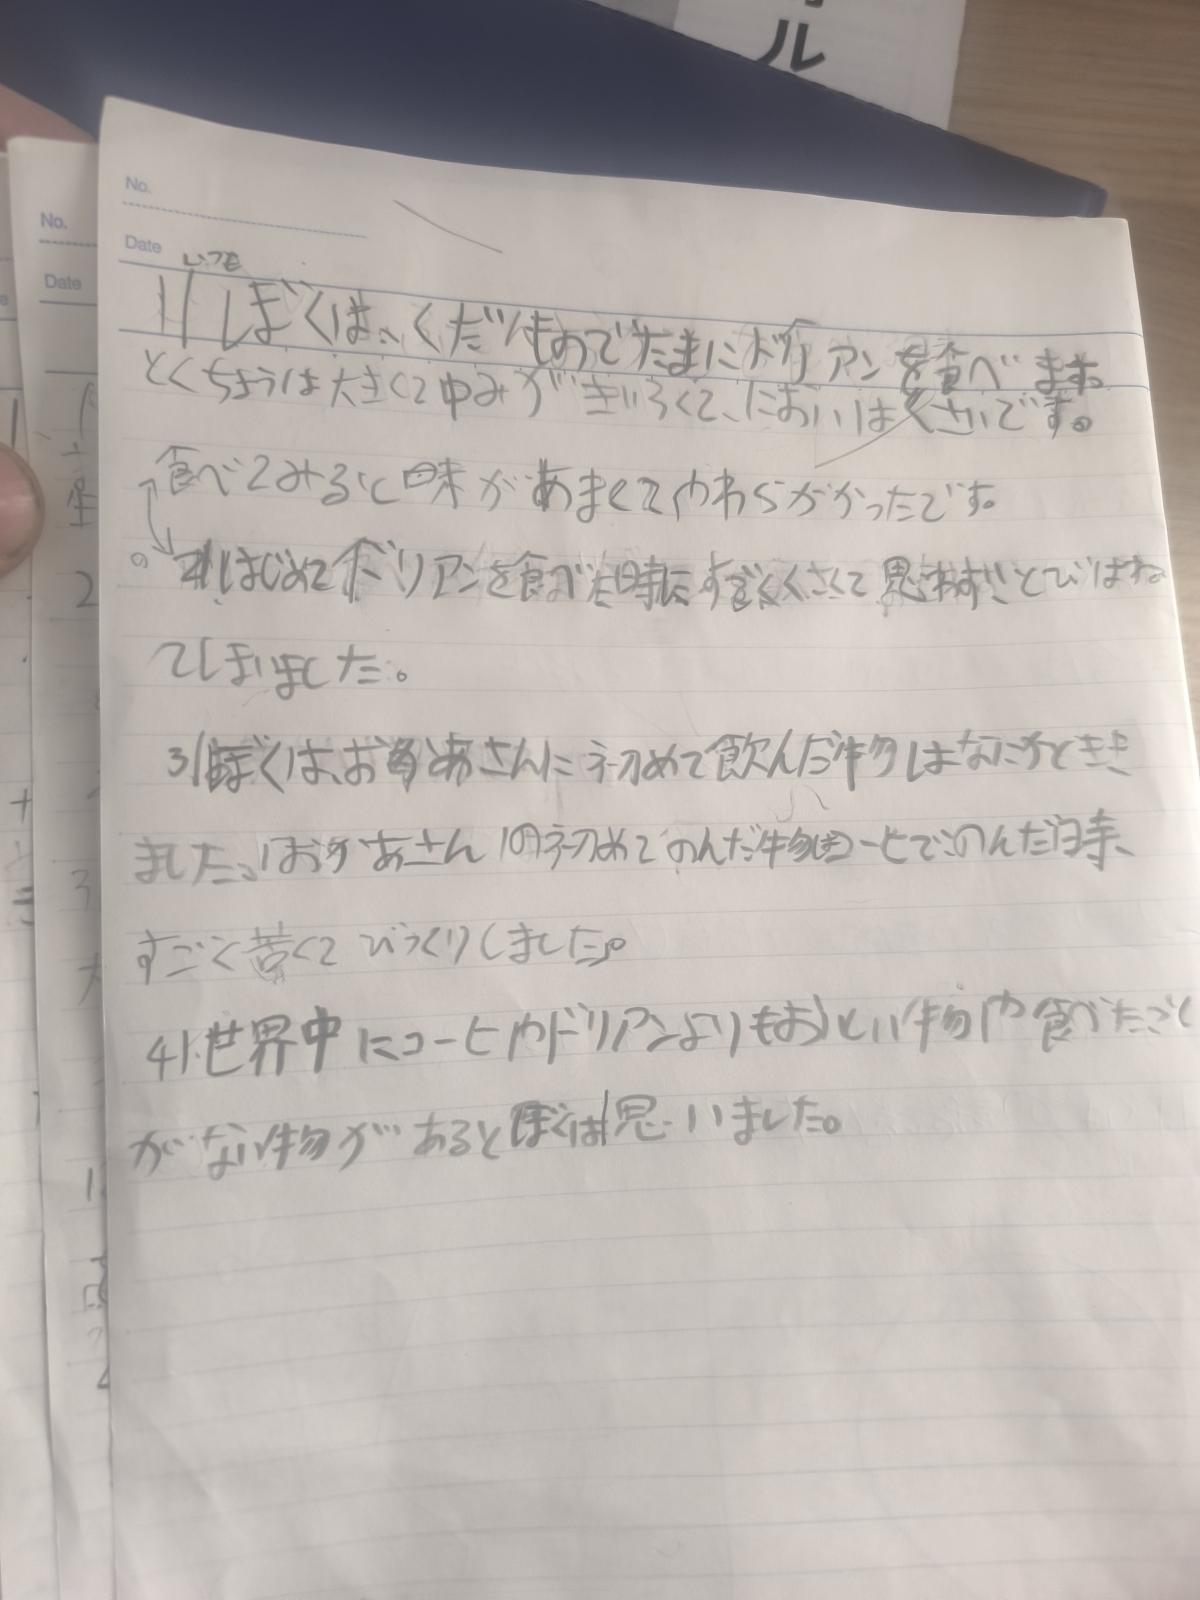 ル
No.
Date
No.
Date
いつも
1 ぼくは、くだものでたまにドリアンを食べます。
とくちょうは大きくて中みがきいろくて、においはくさいです。
食べてみると味があまくてやわらがかったです。
の はじめてドリアンを食べた時にすごくくさくて思わずとびはね
てしまいました。
3 ぼくは、お母あさんに初めて飲んだ物はなにかとき
ました。おかあさんの初めてのんだ物はコーヒでのんだ時、
すごく苦くてびっくりしました。
4 世界中にコーヒやドリアンよりもおいしい物や食べたごと
がない物があるとぼくは思いました。
2
3